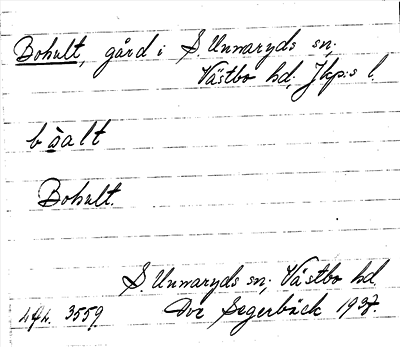 Bohult, gård i S. Unnaryds sn;
Västbo hd; Jkp:s l.
bòalt
Bohult.
S. Unnaryds sn; Västbo hd.
3559. Segerbäck 1937.